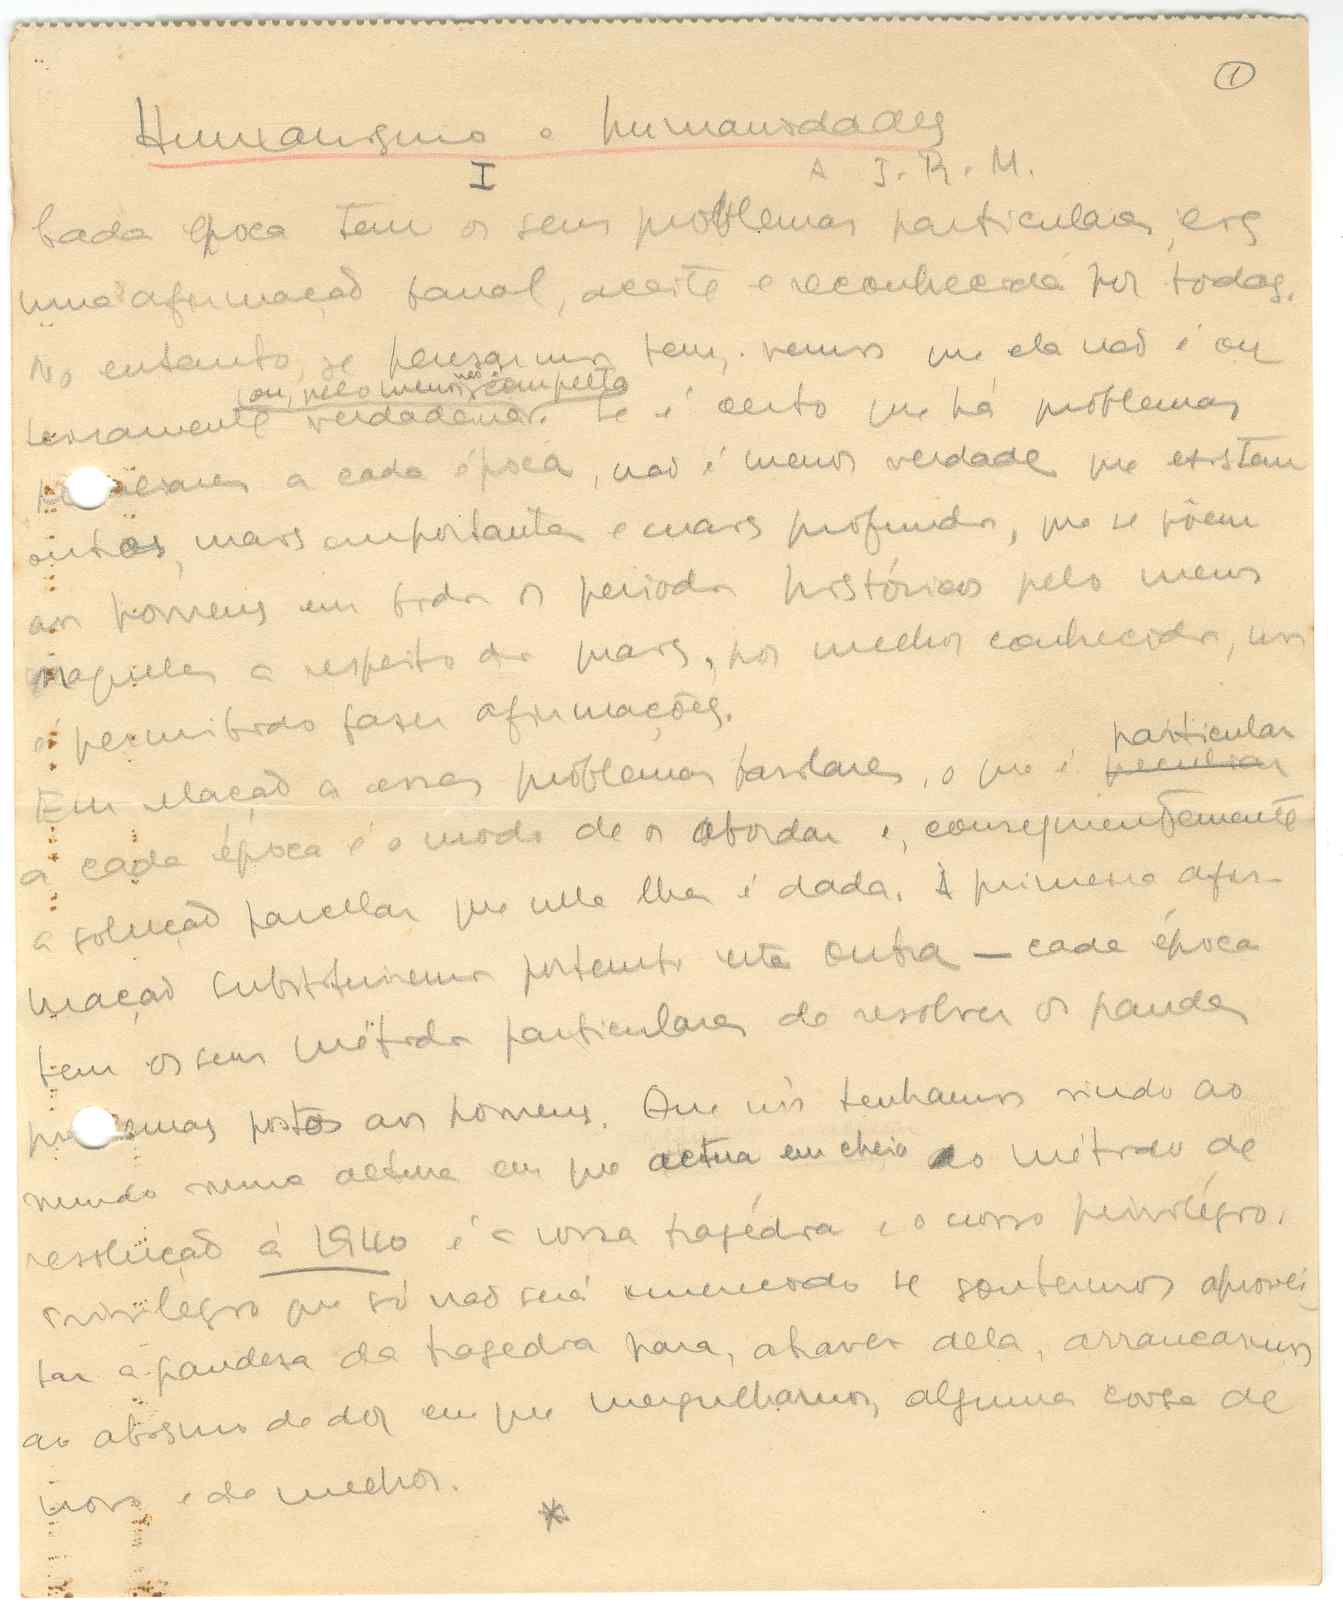 1
Humanismo e humanidades
I
A J. R. M.
Cada época tem os seus problemas particulares, eis
uma afirmação banal, aceite e reconhecida por todos.
No entanto, se pensarmos bem, vemos que ela não é ou
ou, pelo menos, não é completa
verdadeira. Se é certo que há problemas
a cada época, não é menos verdade que existem
outros, mais importantes e mais profundos, que se põem
aos homens em todos os períodos históricos pelo menos
naqueles a respeito dos quais, por melhor conhecidos, nos
é permitido fazer afirmações.
particular
Em relação a esses problemas basilares, o que é peculiar
a cada época é o modo de os abordar e, consequentemente
a solução parcelar que nela lhes é dada. À primeira afir-
mação substituiremos portanto esta outra — cada época
tem os seus métodos particulares de resolver os grandes
problemas postos aos homens. Que nós tenhamos vindo ao
mundo numa altura em que actua em cheio o método de
resolução à 1940 é a nossa tragédia e o nosso privilégio.
Privilégio que só não será se soubermos aprovei-
tar a grandeza da tragédia para, através dela, arrancarmos
ao abismo de dor em que mergulhamos, alguma coisa de
novo e de melhor.
*